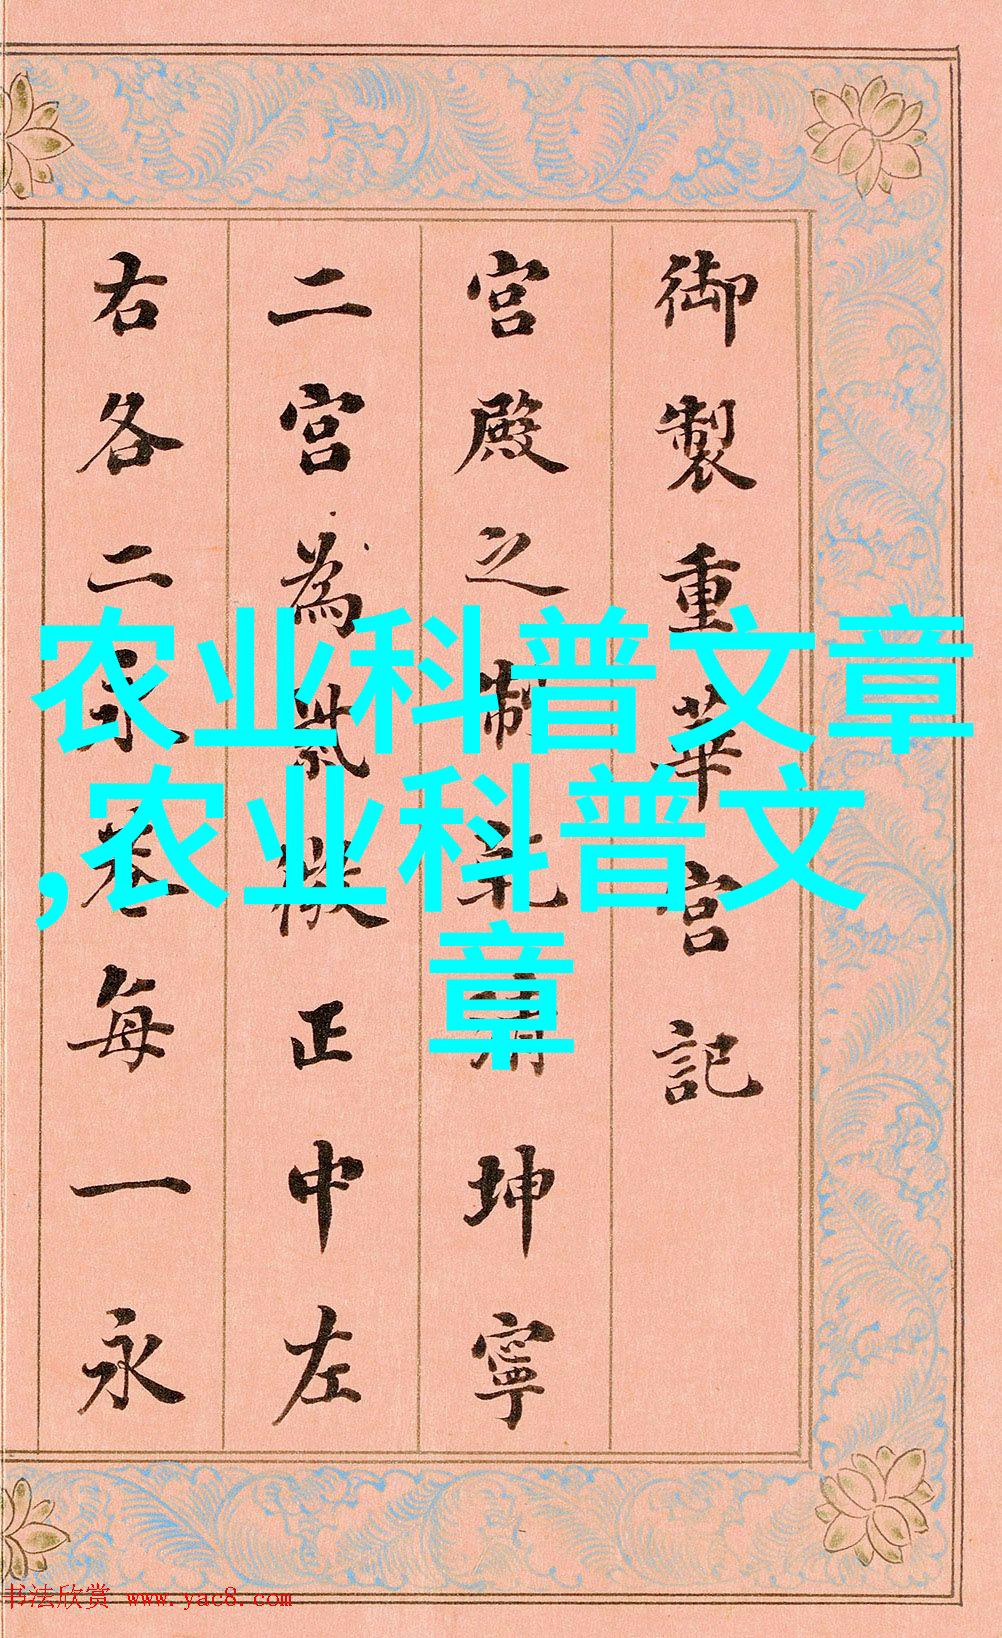 御製重華宮記
宮殿之制乾清坤寧
二宮為紫微正中左
右各二永巷每一永
农业科普文章
,农业科普文
章
书法欣赏 www.yac8.com